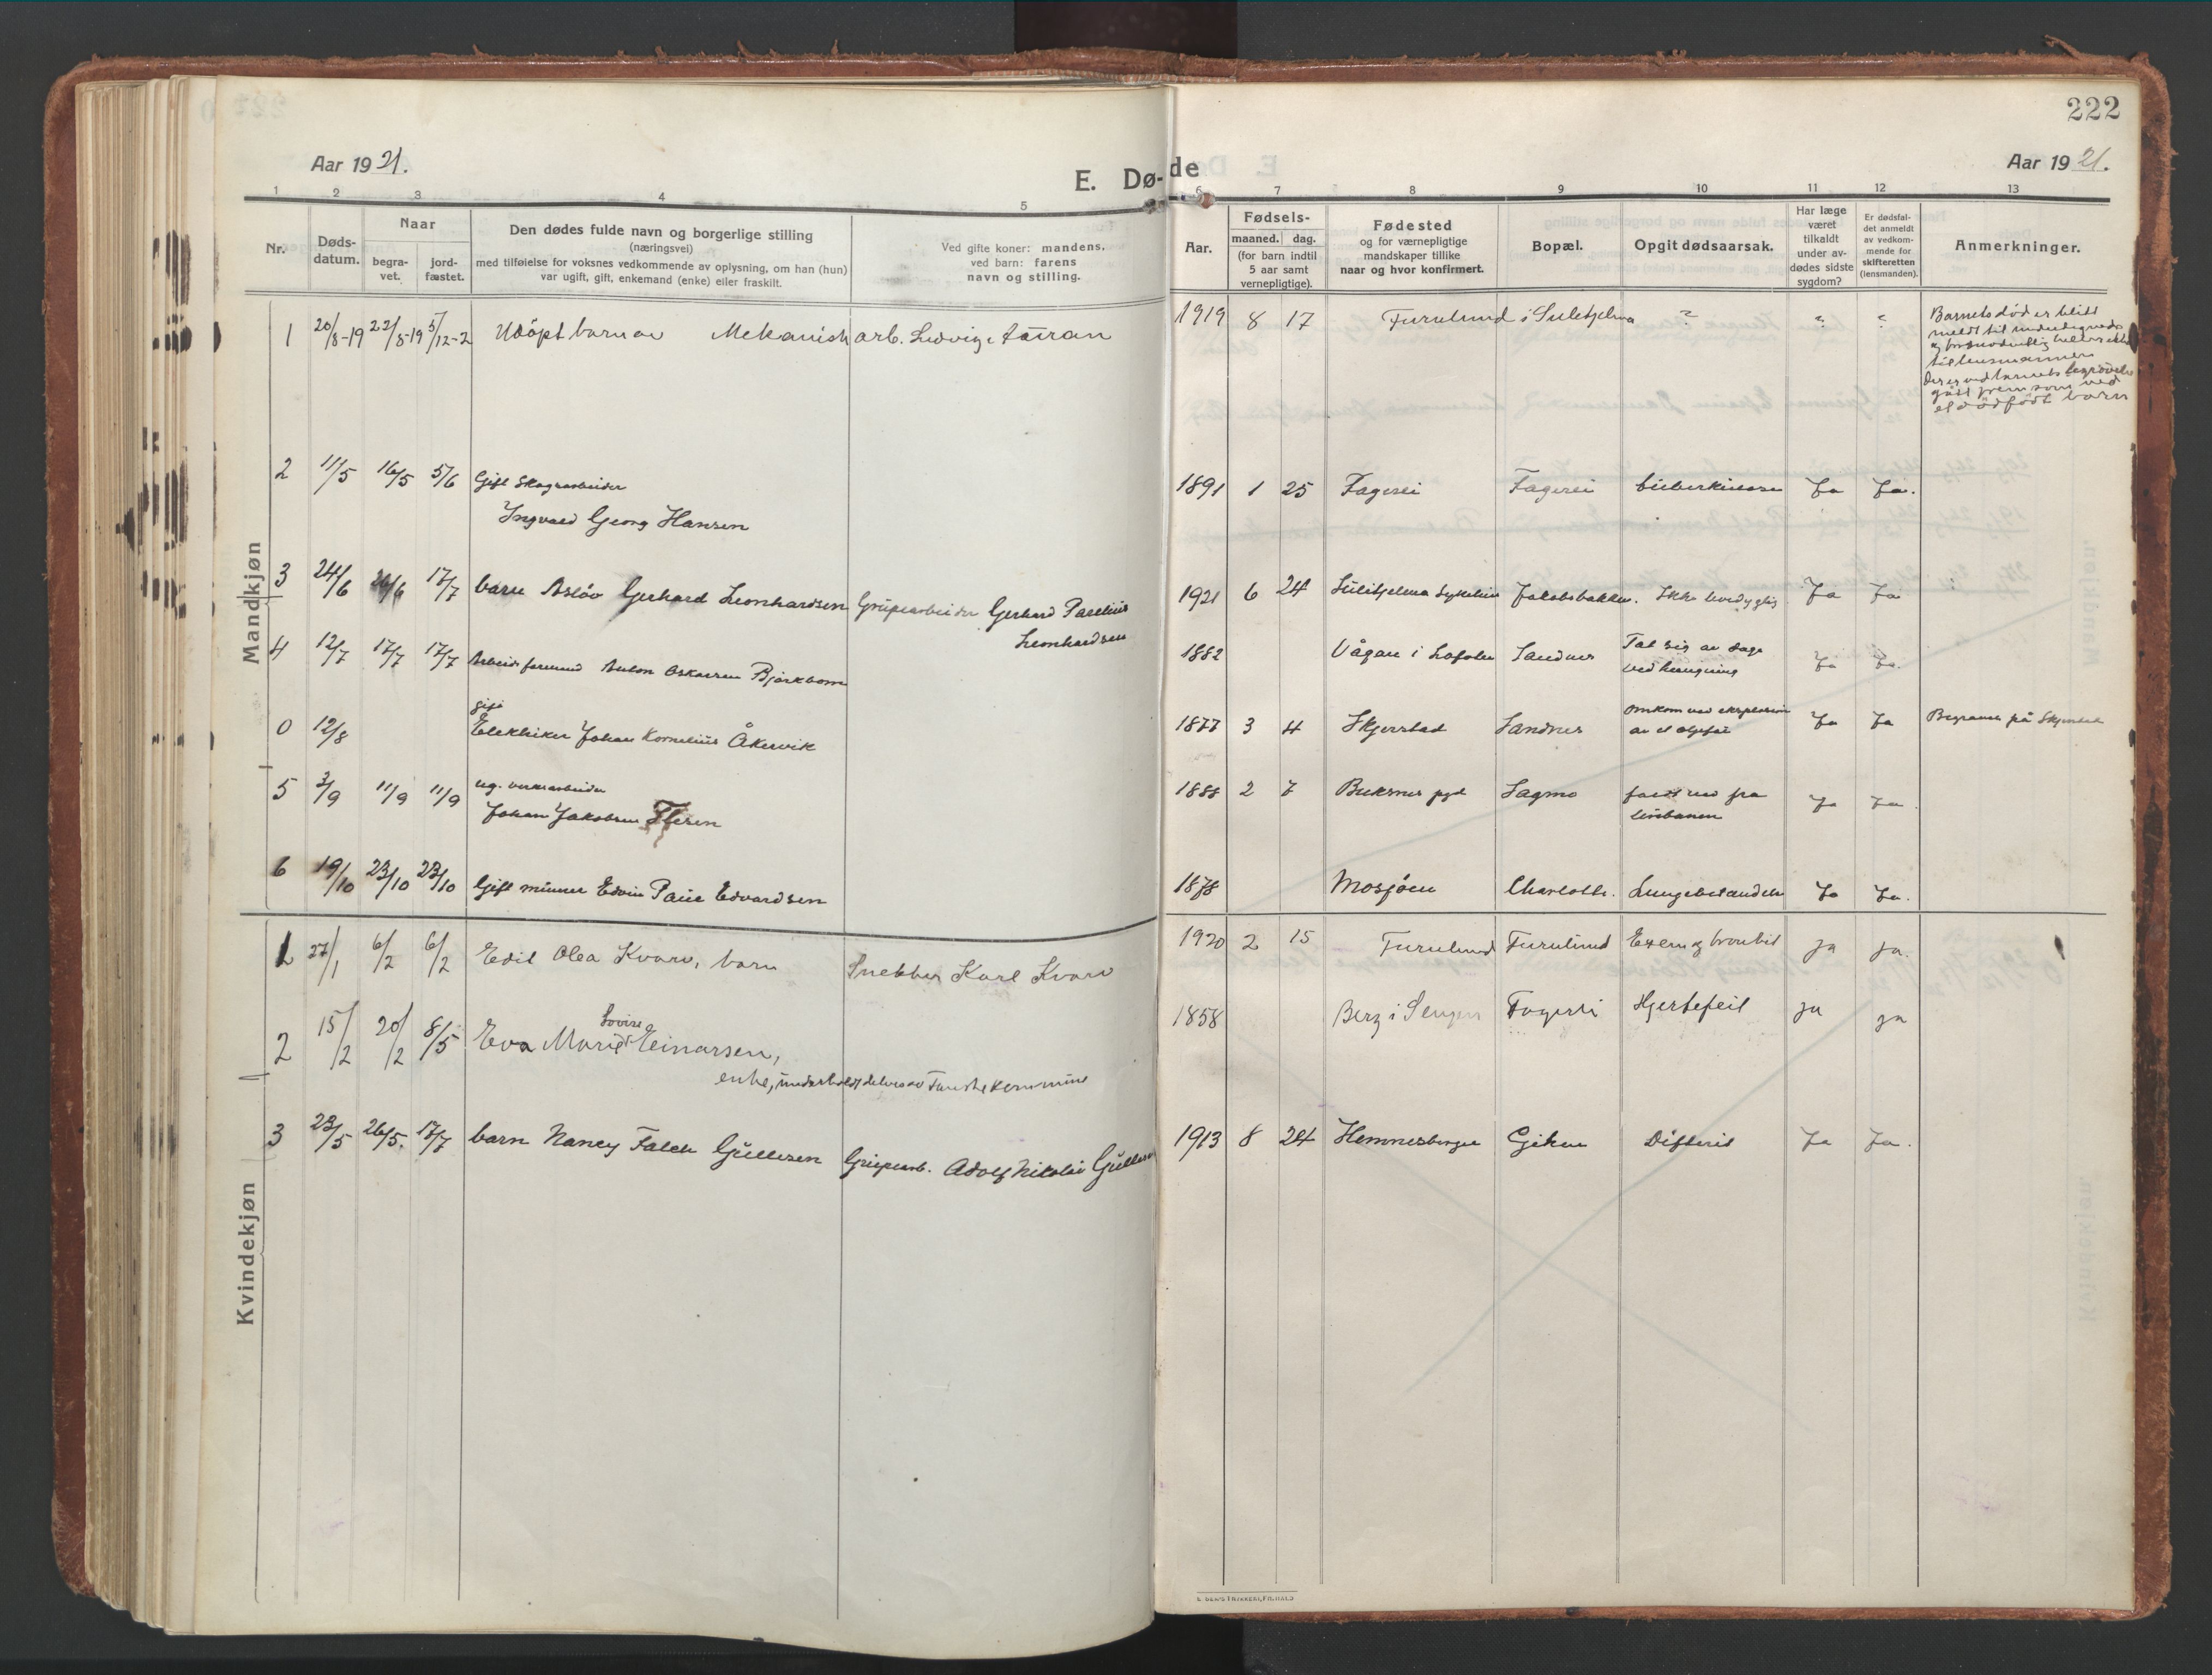 222
Aar 1921.
E. Dø-de
Aar 1921.
1 2 3 4 5 6 7 8 9 10 11 12 13
Nr.
Døds-
datum.
Naar
begra-
vet.
jord-
fæstet.
Den dødes fulde navn og borgerlige stilling
(næringsvei)
med tilføielse for voksnes vedkommende av oplysning, om han (hun)
var ugift, gift, enkemand (enke) eller fraskilt.
Ved gifte koner: mandens,
ved barn: farens
navn og stilling.
Aar.
Fødsels-
maaned. dag.
(for barn indtil
5 aar samt
vernepligtige).
Fødested
og for værnepligtige
mandskaper tillike
naar og hvor konfirmert.
Bopæl.
Opgit dødsaarsak.
Har læge
været
tilkaldt
under av-
dødes sidste
sygdom?
Er dødsfal-
det anmeldt
av vedkom-
mende for
skifteretten
(lensmanden).
Anmerkninger.
Mandkjøn
1 20/8-19 22/8-19 5/12-2 Udöpt barn av Mekanisk arb. Ludvig 1919 8 17 Furulund i Sulitjelma ? ? ?
Barnets död er blitt
meldt til undertegnede
til lensmannen
Der er ved barnets begravelse
gått frem som ved
et dödfödt barn
2 11/5 16/5 5/6 Gift Skogsarbeider
Ingvald Georg Hansen 1891 1 25 Fagerli Fagerli tuberkulose Ja Ja.
3 24/6 26/6 17/7 barn Asløv Gerhard Leonhardsen Grubearbeider Gerhard Parelius
Leonhardsen 1921 6 24 Sulitjelma Sykehus Jakobsbakken. Ikke levedyktig Ja Ja
4 12/7 17/7 17/7 Arbeidsformand Anton Oskarsen Bjørkbom 1882 Vågan i Lofoten Sandnes Tat sig av dage
ved hengning Ja Ja.
0 12/8 gift
Elektriker Johan Kornelius Åkervik 1877 3 4 Skjerstad Sandnes omkom ved eksplosion
av et oljefat Ja Ja Begraven på Skjerstad
5 3/9 11/9 11/9 ug. verksarbeider
Johan Jakobsen 1888 2 7 Buksnes pgd Lagmo faldt ned fra
linbanen Ja Ja.
6 19/10 23/10 23/10 Gift minner Edvin Paul Edvardsen 1878 Mosjøen Charlotte. Lungebetændelse Ja Ja.
Kvindekjøn
1 27/1 6/2 6/2 Edit Olea Kvarv, barn Snekker Karl Kvarv 1920 2 15 Furulund Furulund Exem og bronkit ja ja.
2 15/2 20/2 8/5 Eva Marie Lovise Einarsen,
enke, underholdt delvis av Fauske kommune 1858 Berg i Senjen Fagerli Hjertefeil ja ja
3 23/5 26/5. 17/7 barn Nancy Falch Gullesen Grubearb. Adolf Nikolai Gullesen 1913 8 24 Hemnesberget Giken Difterit Ja Ja.
E. SEM'S TRYKKERI, FR.HALD